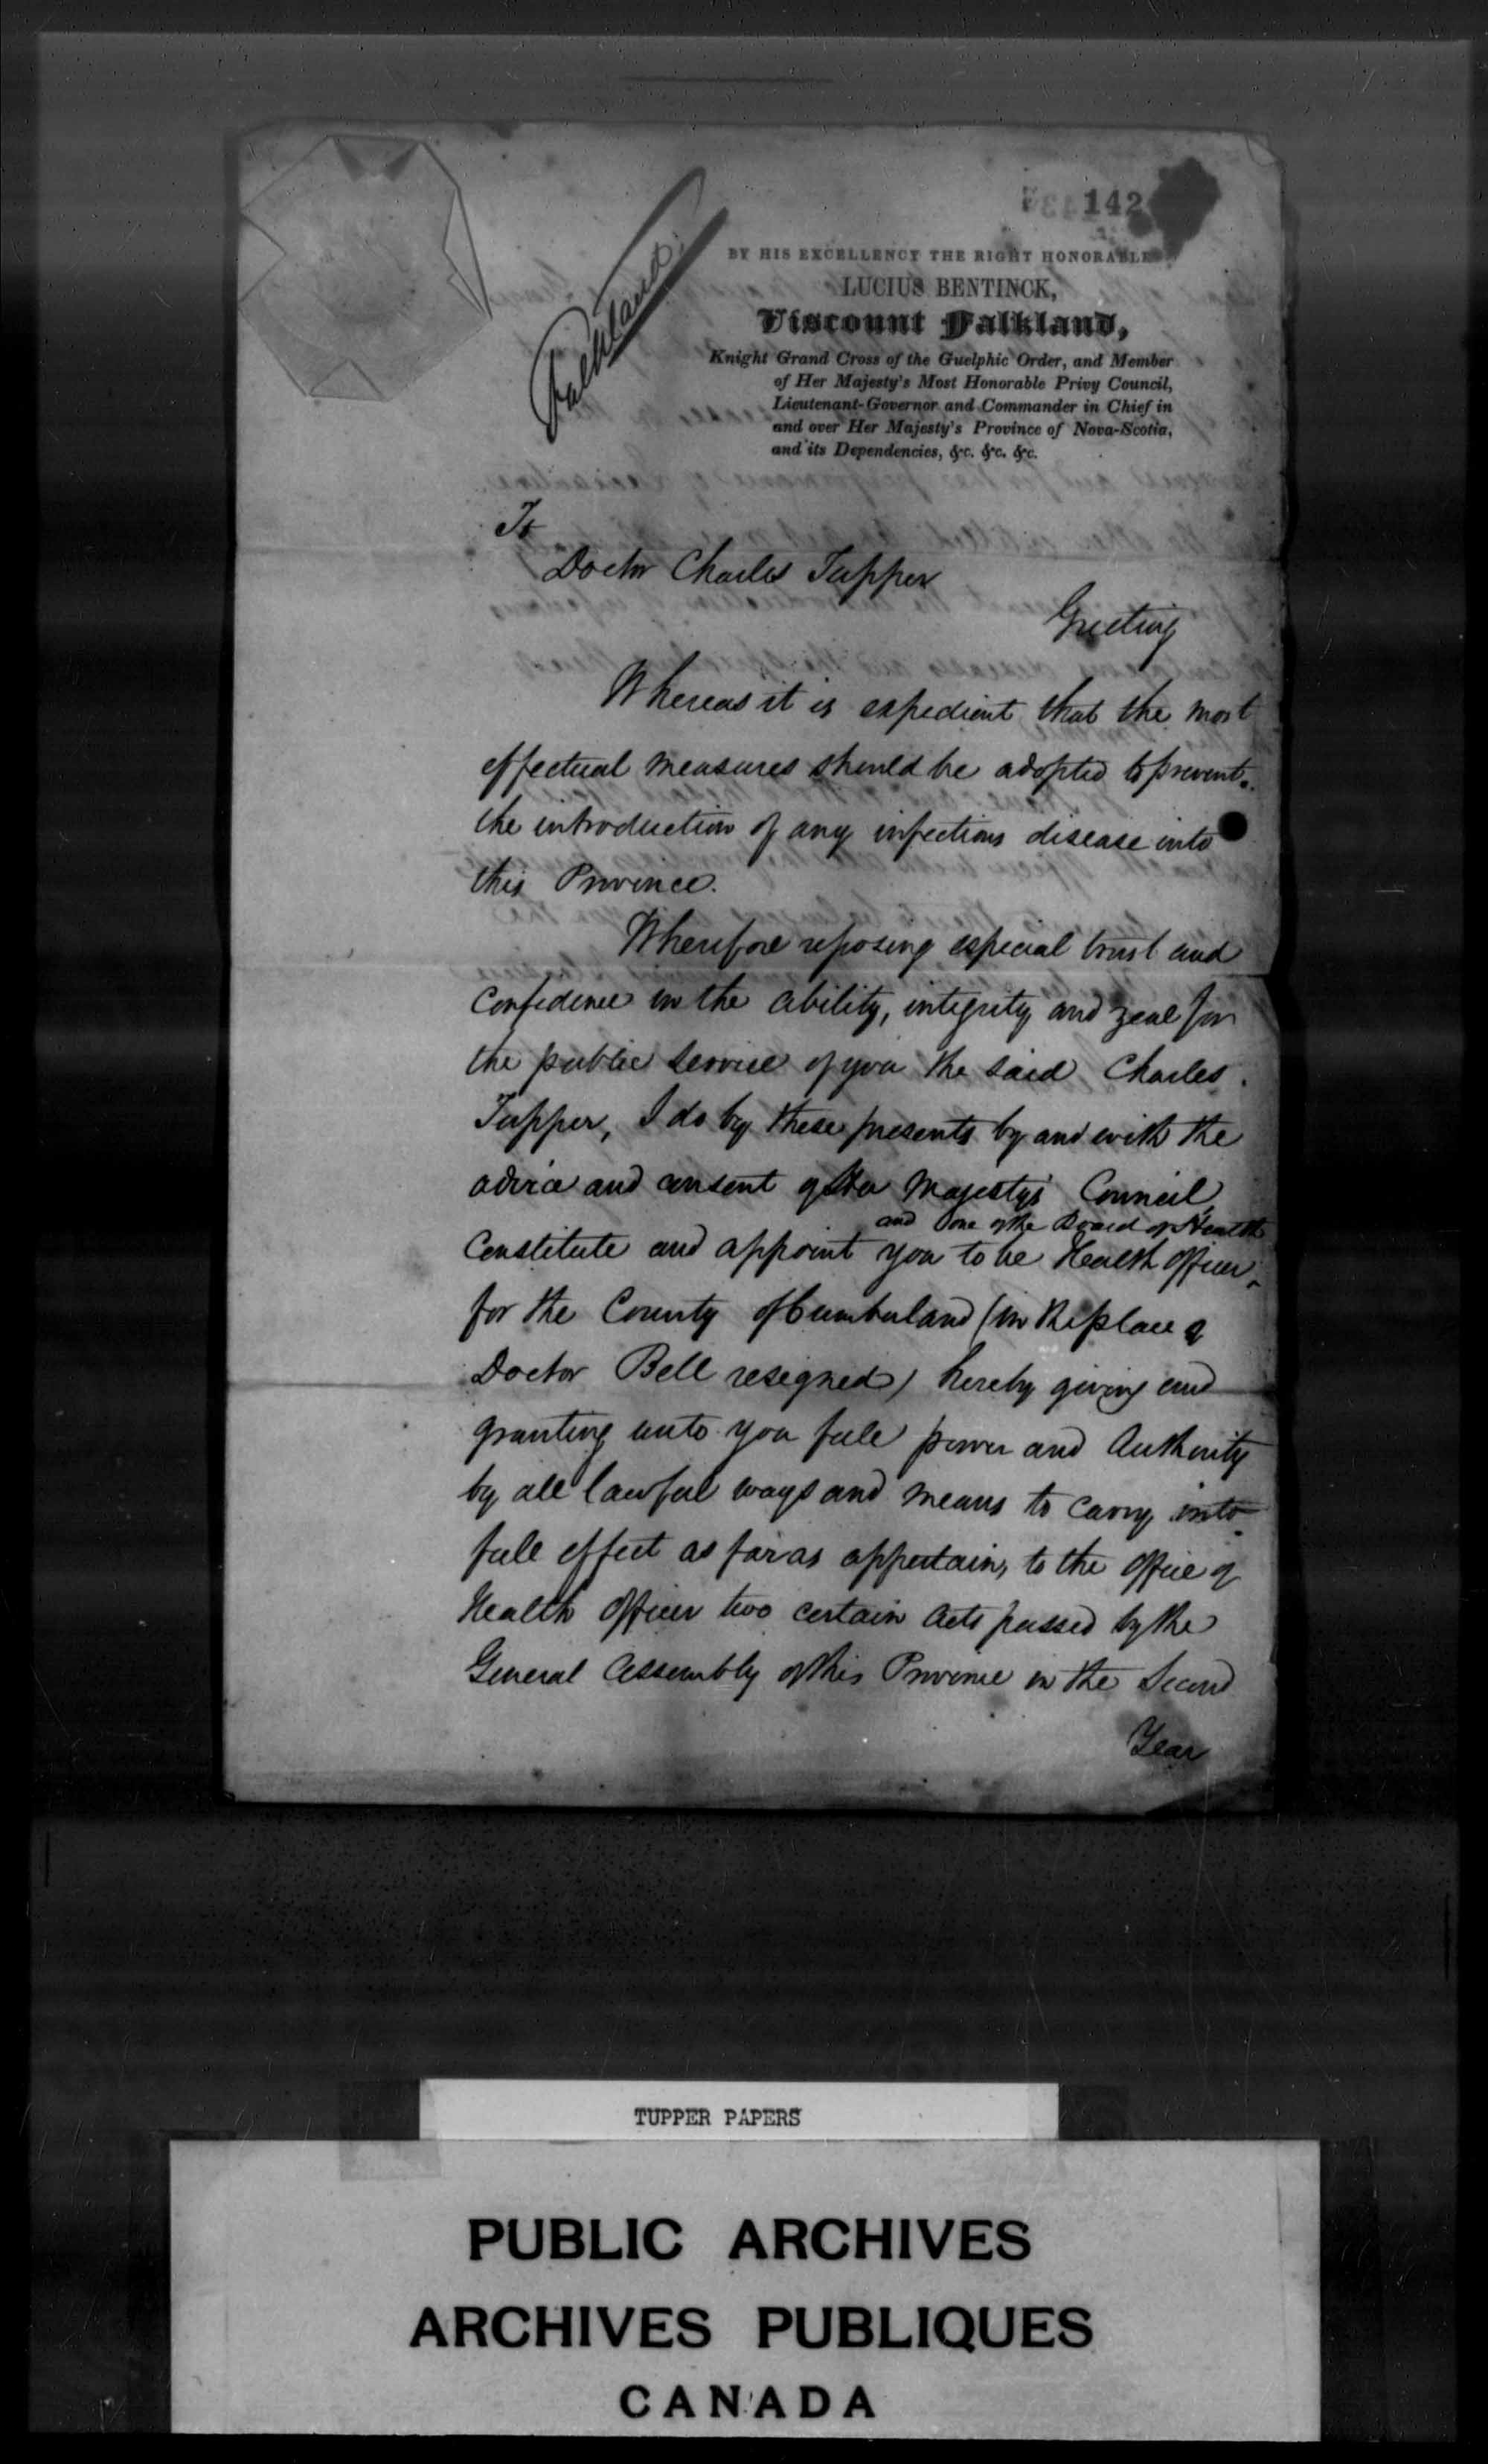 142
Falkland
BY HIS EXCELLENCY THE RIGHT HONORABLE
LUCIUS BENTINCK,
Viscount Falkland,
Knight Grand Cross of the Guelphic Order, and Member
of Her Majesty's Most Honorable Privy Council,
Lieutenant-Governor and Commander in Chief in
and over Her Majesty's Province of Nova-Scotia,
and its Dependencies, &c. &c. &c.
To
Doctor Charles Tupper
Greeting
Whereas it is expedient that the most
effectual measures should be adopted to prevent
the introduction of any infectious disease into
this Province.
Wherefore reposing especial trust and
confidence in the ability, integrity and zeal for
the public service of you the said Charles
Tupper, I do by these presents by and with the
advice and consent of Her Majesty's Council,
and one of the Board of Health
Constitute and appoint you to be Health Officer
for the County of Cumberland (in the place of
Doctor Bell resigned) hereby giving and
granting unto you full power and Authority
by all lawful ways and means to carry into
full effect as far as appertains to the office of
Health Officer two certain Acts passed by the
General Assembly of this Province in the Second
Year
TUPPER PAPERS
PUBLIC ARCHIVES
ARCHIVES PUBLIQUES
CANADA